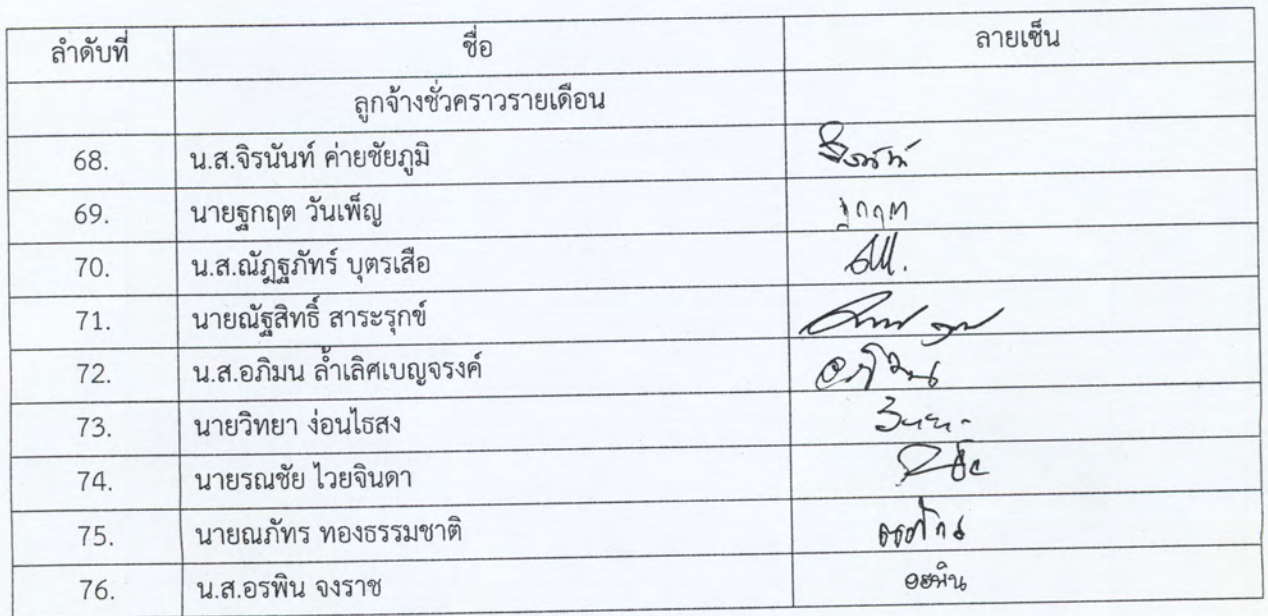 ลำดับที่ ชื่อ ลายเซ็น
ลูกจ้างชั่วคราวรายเดือน
68. น.ส.จิรนันท์ ค่ายชัยภูมิ จิรนันท์
69. นายฐกฤต วันเพ็ญ ฐกฤต
70. น.ส.ณัฏฐภัทร์ บุตรเสือ
71. นายณัฐสิทธิ์ สาระรุกข์
72. น.ส.อภิมน ล้ำเลิศเบญจรงค์
73. นายวิทยา ง่อนไธสง
74. นายรณชัย ไวยจินดา
75. นายณภัทร ทองธรรมชาติ
76. น.ส.อรพิน จงราช อรพิน